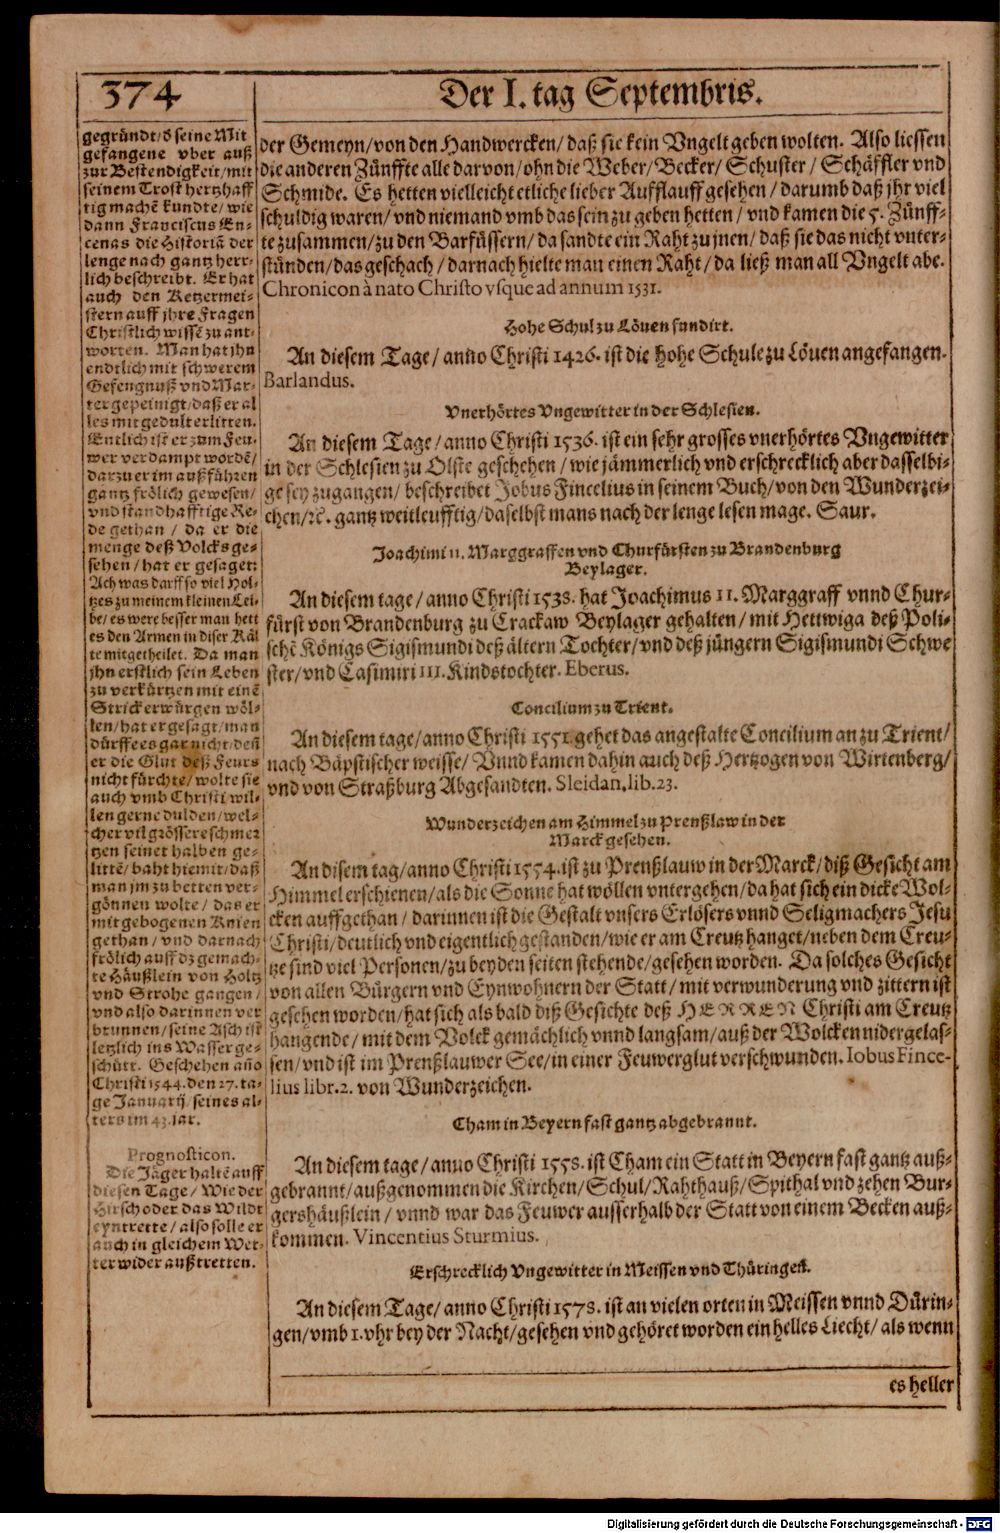 374
Der I. tag Septembris.
gegründt/d seine Mit
gefangene vber auß
zur Bestendigkeit/mit
seinem Trost hertzhaff
tig machẽ kundte/wie
dann Franciscus En-
cenas die Historiã der
lenge nach gantz herr-
lich beschreibt. Er hat
auch den Ketzermei-
stern auff jhre Fragen
Christlich wissẽ zu ant-
worten. Man hat jhn
endtlich mit schwerem
Gefengnuß vnd Mar-
ter gepeinigt/daß er al
les mit gedult erlitten.
Entlich ist er zum Feu-
wer verdampt wordẽ/
darzu er im außführen
gantz frölich gewesen/
vnd standhafftige Re-
de gethan / da er die
menge deß Volcks ge-
sehen/hat er gesaget:
Ach was darff so viel Hol-
tzes zu meinem kleinen Lei-
be/es were besser man hett
es den Armen in diser Käl
te mitgetheilet. Da man
jhn erstlich sein Leben
zu verkürtzen mit einẽ
Strick erwürgen wöl-
len/hat er gesagt/man
dürffe es gar nicht/deñ
er die Glut deß Feurs
nicht fürchte/wolte sie
auch vmb Christi wil-
len gerne dulden/wel-
cher vil grössere schmer
tzen seinet halben ge-
littẽ/baht hiemit/daß
man jm zu betten ver-
gönnen wolte/das er
mit gebogenen Knien
gethan/vnd darnach
frölich auff dz gemach-
te Häußlein von Holtz
vnd Strohe gangen/
vnd also darinnen ver
brunnen/seine Asch ist
letzlich ins Wasser ge-
schütt. Geschehen año
Christi 1544. den 27. ta-
ge Januarij seines al-
ters im 43. jar.
Prognosticon.
Die Jäger haltẽ auff
diesen Tage/Wie der
Hirsch oder das Wildt
eyntrette/also solle er
auch in gleichem Wet-
ter wider außtretten.
der Gemeyn/von den Handwercken/daß sie kein Vngelt geben wolten. Also liessen
die anderen Zünffte alle darvon/ohn die Weber/Becker/Schuster/Schäffler vnd
Schmide. Es hetten vielleicht etliche lieber Aufflauff gesehen/darumb daß jhr viel
schuldig waren/vnd niemand vmb das sein zu geben hetten/vnd kamen die 5. Zünff-
te zusammen/zu den Barfüssern/da sandte ein Raht zu jnen/daß sie das nicht vnter-
stünden/das geschach/darnach hielte man einen Raht/da ließ man all Vngelt abe.
Chronicon à nato Christo vsque ad annum 1531.
Hohe Schul zu Löuen fundirt.
An diesem Tage/anño Christi 1426. ist die Hohe Schule zu Löuen angefangen.
Barlandus.
Vnerhörtes Vngewitter in der Schlesien.
An diesem Tage/anno Christi 1536. ist ein sehr grosses vnerhörtes Vngewitter
in der Schlesien zu Olste geschehen/wie jämmerlich vnd erschrecklich aber dasselbi-
ge sey zugangen/beschreibet Jobus Fincelius in seinem Buch/von den Wunderzei-
chen/ꝛc. gantz weitleufftig/daselbst mans nach der lenge lesen mage. Saur.
Joachimi II. Marggraffen vnd Churfürsten zu Brandenburg
Beylager.
An diesem tage/anno Christi 1538. hat Joachimus II. Marggraff vnnd Chur-
fürst von Brandenburg zu Crackaw Beylager gehalten/mit Hettwiga deß Poli-
schẽ Königs Sigismundi deß ältern Tochter/vnd deß jüngern Sigismundi Schwe
ster/vnd Casimiri III. Kindstochter. Eberus.
Concilium zu Trient.
An diesem tage/anno Christi 1551. gehet das angestalte Concilium an zu Trient/
nach Bäpstischer weisse/Vnnd kamen dahin auch deß Hertzogen von Wirtenberg/
vnd von Straßburg Abgesandten. Sleidan. lib. 23.
Wunderzeichen am Himmel zu Prenßlaw in der
Marck gesehen.
An disem tag/anno Christi 1554. ist zu Prenßlauw in der Marck/diß Gesicht am
Himmel erschienen/als die Sonne hat wöllen vntergehen/da hat sich ein dicke Wol-
cken auffgethan/darinnen ist die Gestalt vnsers Erlösers vnnd Seligmachers Jesu
Christi/deutlich vnd eigentlich gestanden/wie er am Creutz hanget/neben dem Creu-
tze sind viel Personen/zu beyden seiten stehende/gesehen worden. Da solches Gesicht
von allen Bürgern vnd Eynwohnern der Statt/mit verwunderung vnd zittern ist
gesehen worden/hat sich als bald diß Gesichte deß HERREN Christi am Creutz
hangende/mit dem Volck gemächlich vnnd langsam/auß der Wolcken nidergelas-
sen/vnd ist im Prenßlauwer See/in einer Feuwerglut verschwunden. Iobus Fince-
lius libr. 2. von Wunderzeichen.
Cham in Beyern fast gantz abgebrannt.
An diesem tage/anno Christi 1558. ist Cham ein Statt in Beyern fast gantz auß-
gebrannt/außgenommen die Kirchen/Schul/Rahthauß/Spithal vnd zehen Bur-
gershäußlein/vnnd war das Feuwer ausserhalb der Statt von einem Becken auß-
kommen. Vincentius Sturmius.
Erschrecklich Vngewitter in Meissen vnd Thüringen.
An diesem Tage/anno Christi 1578. ist an vielen orten in Meissen vnnd Dürin-
gen/vmb 1. vhr bey der Nacht/gesehen vnd gehöret worden ein helles Liecht/als wenn
es heller
Digitalisierung gefördert durch die Deutsche Forschungsgemeinschaft - DFG